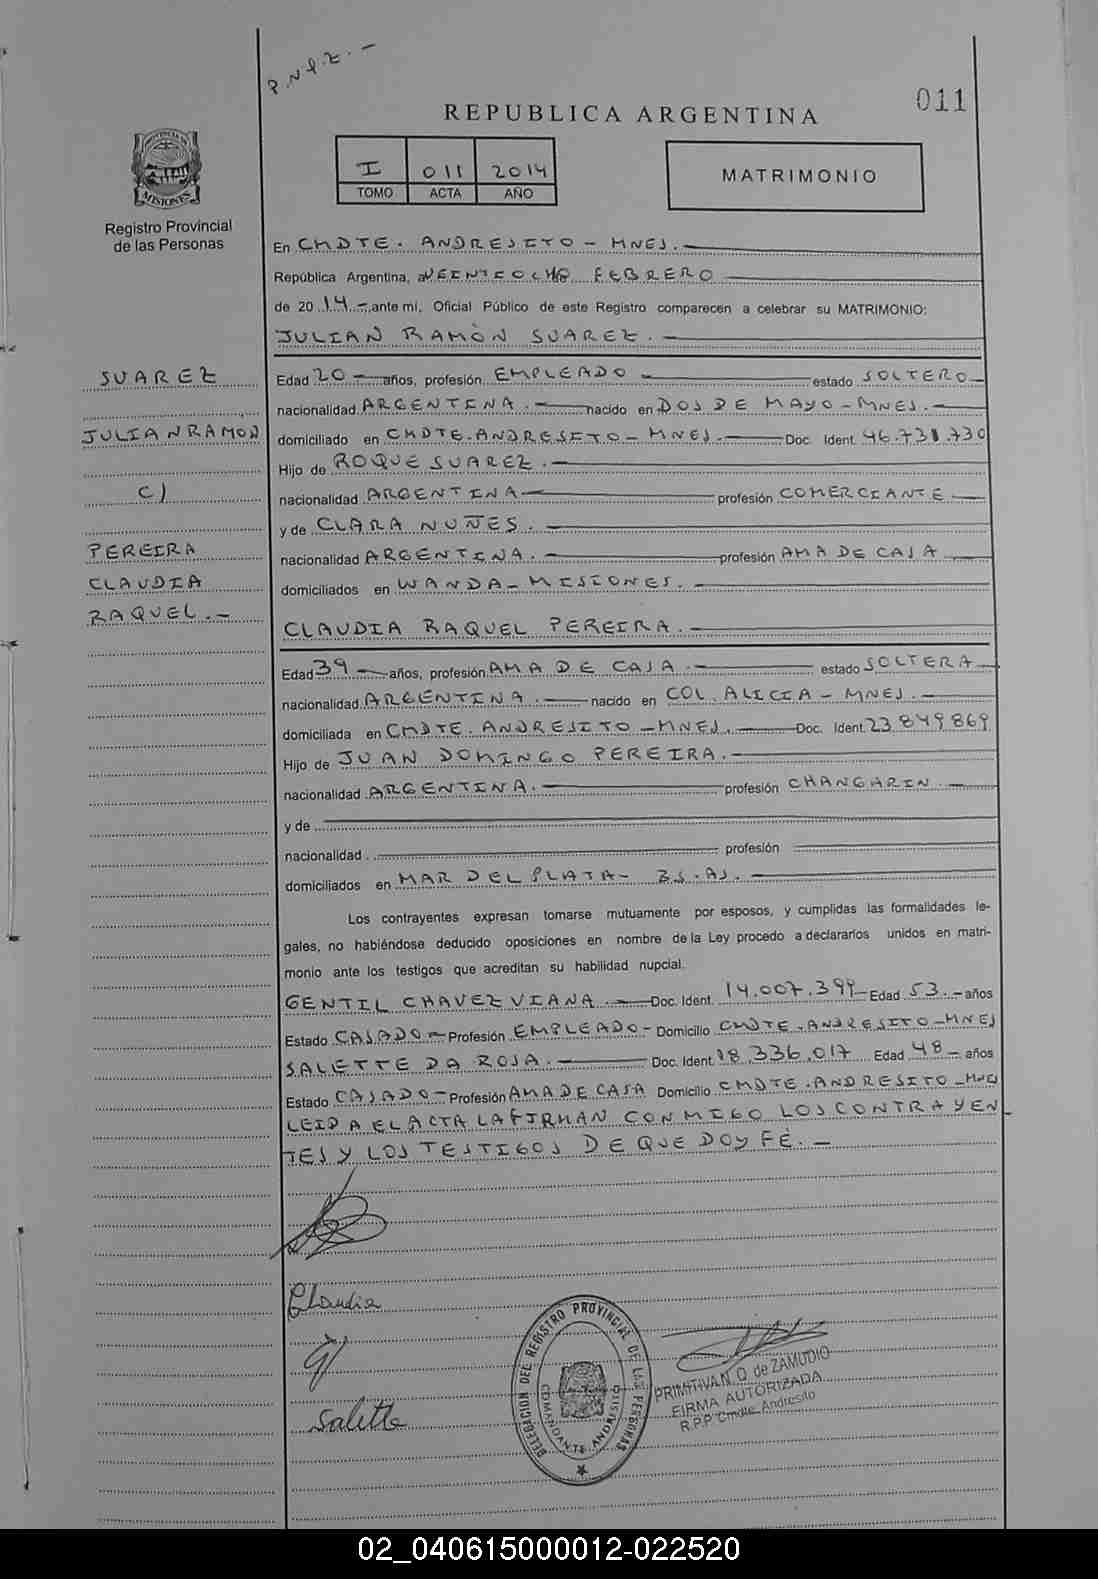 P.N.I.Z.-
REPUBLICA ARGENTINA
011
PROVINCIA DE
MISIONES
Registro Provincial
de las Personas
I 011 2014
TOMO ACTA AÑO
MATRIMONIO
En CMDTE. ANDRESITO - MNES.
República Argentina, a VEINTIOCHO FEBRERO
de 20 14 - ante mi, Oficial Público de este Registro comparecen a celebrar su MATRIMONIO:
JULIAN RAMÒN SUAREZ. -
SUAREZ
JULIAN RAMON
C/
PEREIRA
CLAUDIA
RAQUEL.-
Edad 20 - años, profesión EMPLEADO - estado SOLTERO -
nacionalidad ARGENTINA. - nacido en DOS DE MAYO - MNES. -
domiciliado en CMDTE. ANDRESITO - MNES. - Doc. Ident. 46.731.730
Hijo de ROQUE SUAREZ. -
nacionalidad ARGENTINA - profesión COMERCIANTE -
y de CLARA NUÑES. -
nacionalidad ARGENTINA. - profesión AMA DE CASA
domiciliados en WANDA - MISIONES. -
CLAUDIA RAQUEL PEREIRA. -
Edad 39 - años, profesión AMA DE CASA. - estado SOLTERA -
nacionalidad ARGENTINA. - nacido en COL. ALICIA - MNES. -
domiciliada en CMDTE. ANDRESITO - MNES. - Doc. Ident. 23.849.869
Hijo de JUAN DOMINGO PEREIRA. -
nacionalidad ARGENTINA. - profesión CHANGARIN. -
y de
nacionalidad profesión
domiciliados en MAR DEL PLATA - BS. AS. -
Los contrayentes expresan tomarse mutuamente por esposos, y cumplidas las formalidades le-
gales, no habiéndose deducido oposiciones en nombre de la Ley procedo a declararlos unidos en matri-
monio ante los testigos que acreditan su habilidad nupcial.
GENTIL CHAVEZ VIANA. - Doc. Ident. 14.007.399 - Edad 53. - años
Estado CASADO - Profesión EMPLEADO - Domicilio CMDTE. ANDRESITO - MNES
SALETTE DA ROSA. - Doc. Ident. 18.336.017 Edad 48 - años
Estado CASADO - Profesión AMA DE CASA Domicilio CMDTE. ANDRESITO - MNES
LEIDA EL ACTA LA FIRMAN CONMIGO LOS CONTRAYEN
TES Y LOS TESTIGOS DE QUE DOY FÉ. -
Claudia
Salette
DELEGACION DEL REGISTRO PROVINCIAL DE LAS PERSONAS
COMANDANTE ANDRESITO
PRIMITIVA N. O. de ZAMUDIO
FIRMA AUTORIZADA
R.P.P. Cmdte. Andresito
02_040615000012-022520